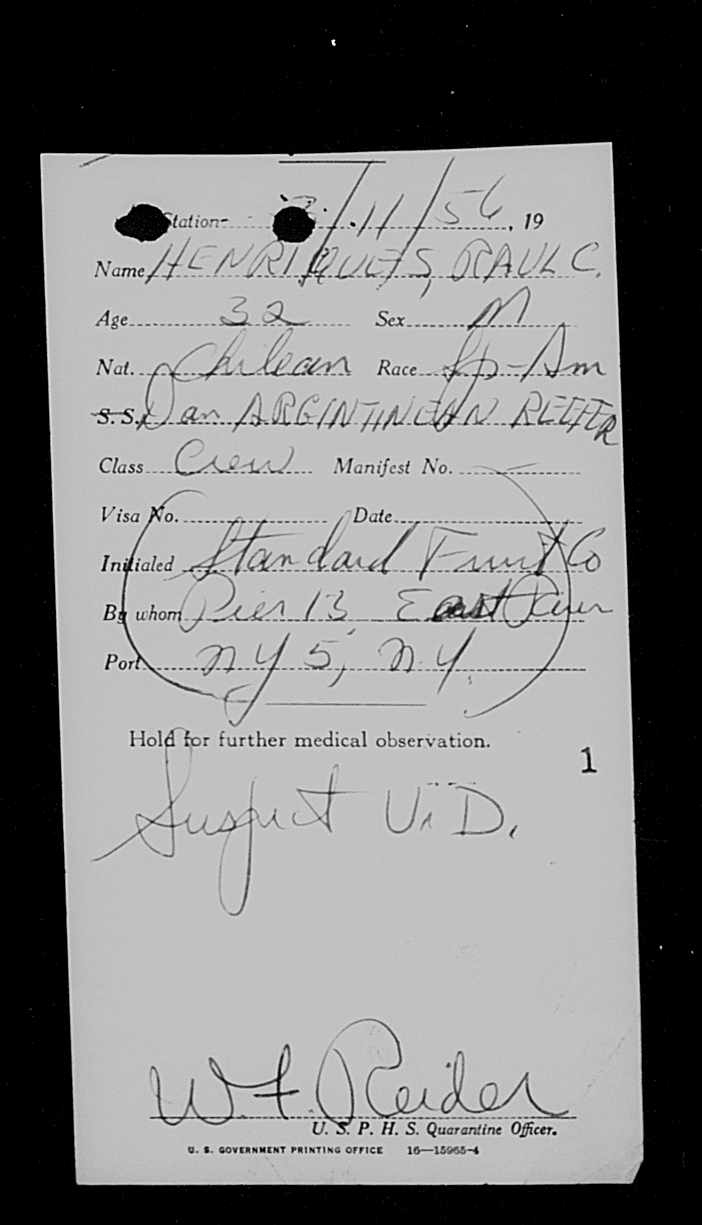 Station 3/11/56, 19
Name HENRIQUES, RAUL C.
Age 32 Sex M
Nat. Chilean Race Sp-Am
S. S. Dan ARGINTINEAN REEFER
Class Crew Manifest No. —
Visa No. Date
Initialed Standard Fruit Co
By whom Pier 13 East River
Port NY 5, N.Y.
Hold for further medical observation.
1
Suspect V.D.
W.F. Reider
U. S. P. H. S. Quarantine Officer.
U. S. GOVERNMENT PRINTING OFFICE 16—15965-4